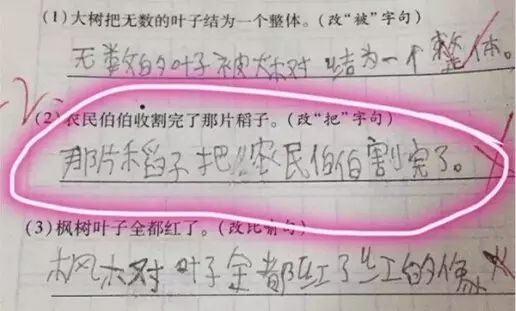 (1)大树把无数的叶子结为一个整体。(改“被”字句)
无数的叶子被大树结为一个整体。
-2
(2)农民伯伯收割完了那片稻子。(改“把”字句)
那片稻子把农民伯伯割完了。
(3)枫树叶子全都红了。(改比喻句)
枫树叶子全都红了红的像火